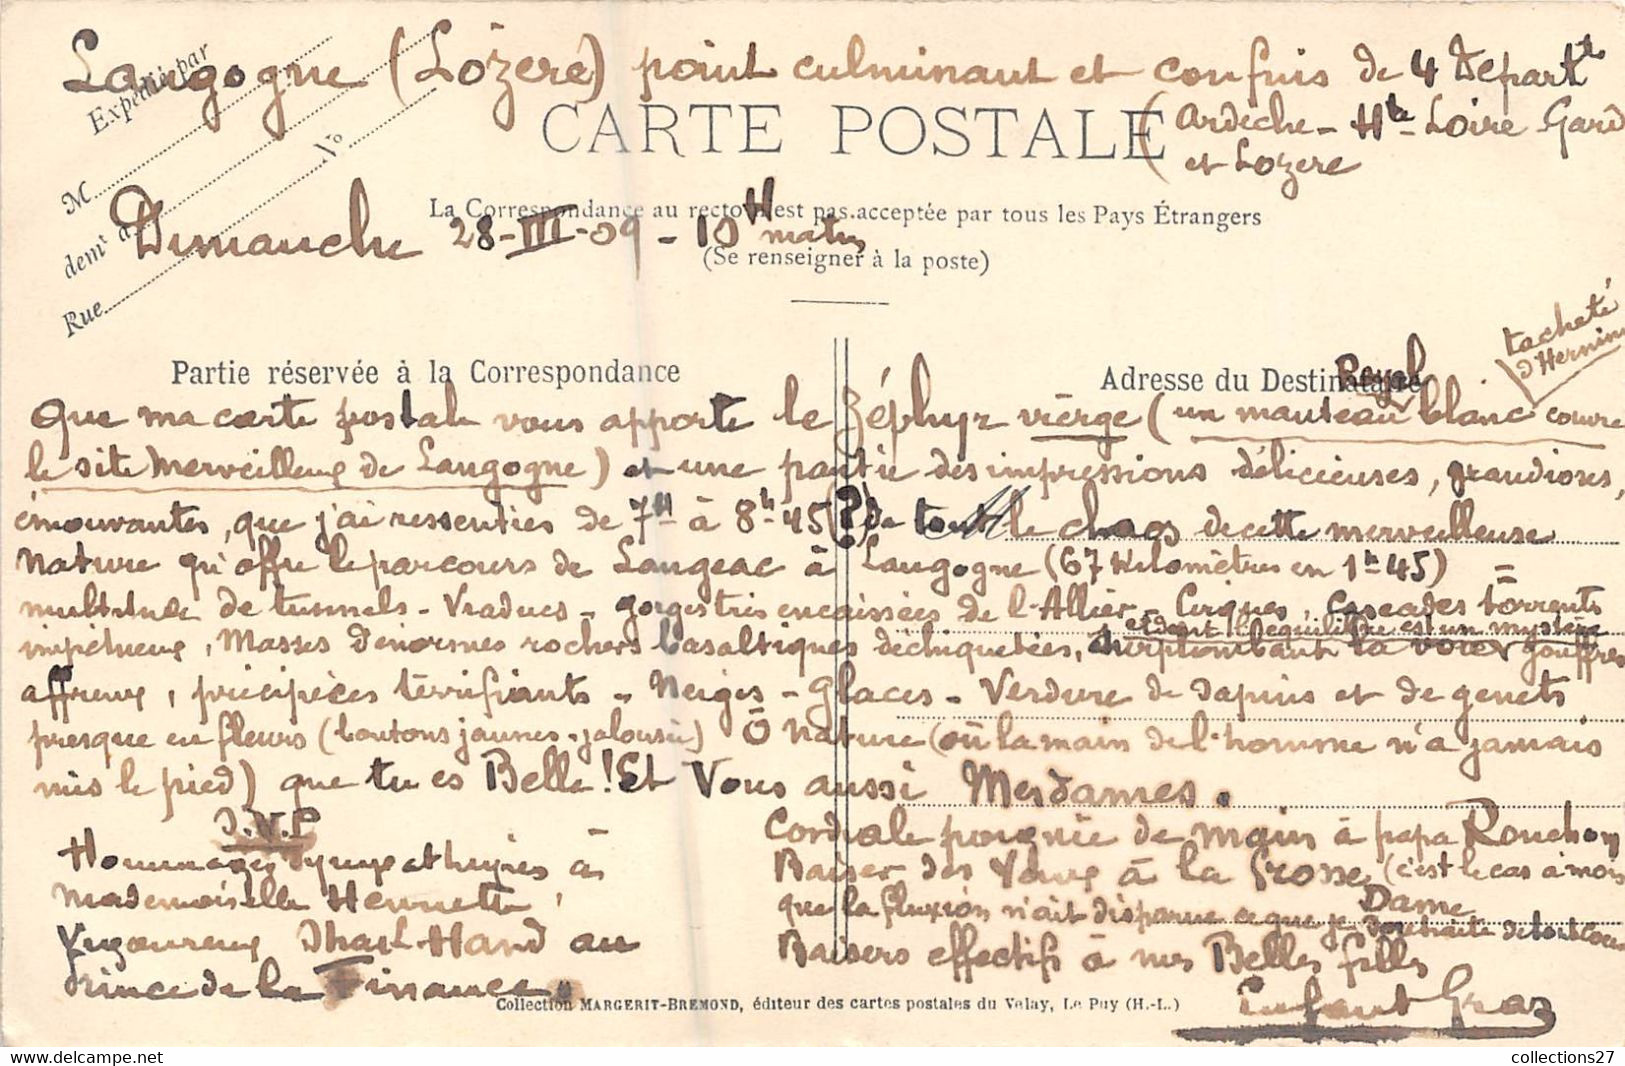 Langogne (Lozère) point culminant et confins de 4 Départts
Expédié par
CARTE POSTALE
(Ardèche - Hte - Loire Gard
et Lozère
M
No
La Correspondance au recto n'est pas acceptée par tous les Pays Étrangers
demt à
Dimanche 28-III-09 - 10H matin
(Se renseigner à la poste)
Rue
tacheté
d'Hermine
Partie réservée à la Correspondance
Adresse du Destinataire
Royal
Que ma carte postale vous apporte le Zéphyr vierge (un manteau blanc couvre
le site merveilleux de Langogne) et une partie des impressions délicieuses, grandioses,
émouvantes, que j'ai ressenties de 7H à 8h 45 (?) de tout le chaos de cette merveilleuse
Nature qu'offre le parcours de Langeac à Langogne (67 Kilomètres en 1h 45) =
multitude de tunnels - Viaducs - gorges très encaissées de l'Allier - Cirques, Cascades torrents
et dont l'équilibre est un mystère
impétueux, Masses d'énormes rochers basaltiques déchiquetées, surplombant la voie, gouffres
affreux, précipices terrifiants - Neiges - Glaces - Verdure de sapins et de genets
presque en fleurs (boutons jaunes - jalousie) Ô Nature (où la main de l'homme n'a jamais
mis le pied) que tu es Belle ! Et Vous aussi Mesdames.
Cordiale poignée de main à papa Rouchon
Hommages sympathiques à
Baiser des Yeux à la Grosse (c'est le cas à moins
Mademoiselle Henriette,
que la fluxion n'ait disparue ce que je
Dame
souhaite de tout coeur
Vigoureux Shak-Hand au
Baisers effectifs à mes Belles filles
Prince de la Finance.
Collection MARGERIT-BREMOND, éditeur des cartes postales du Velay, Le Puy (H.-L.)
Enfant Gras
collections27